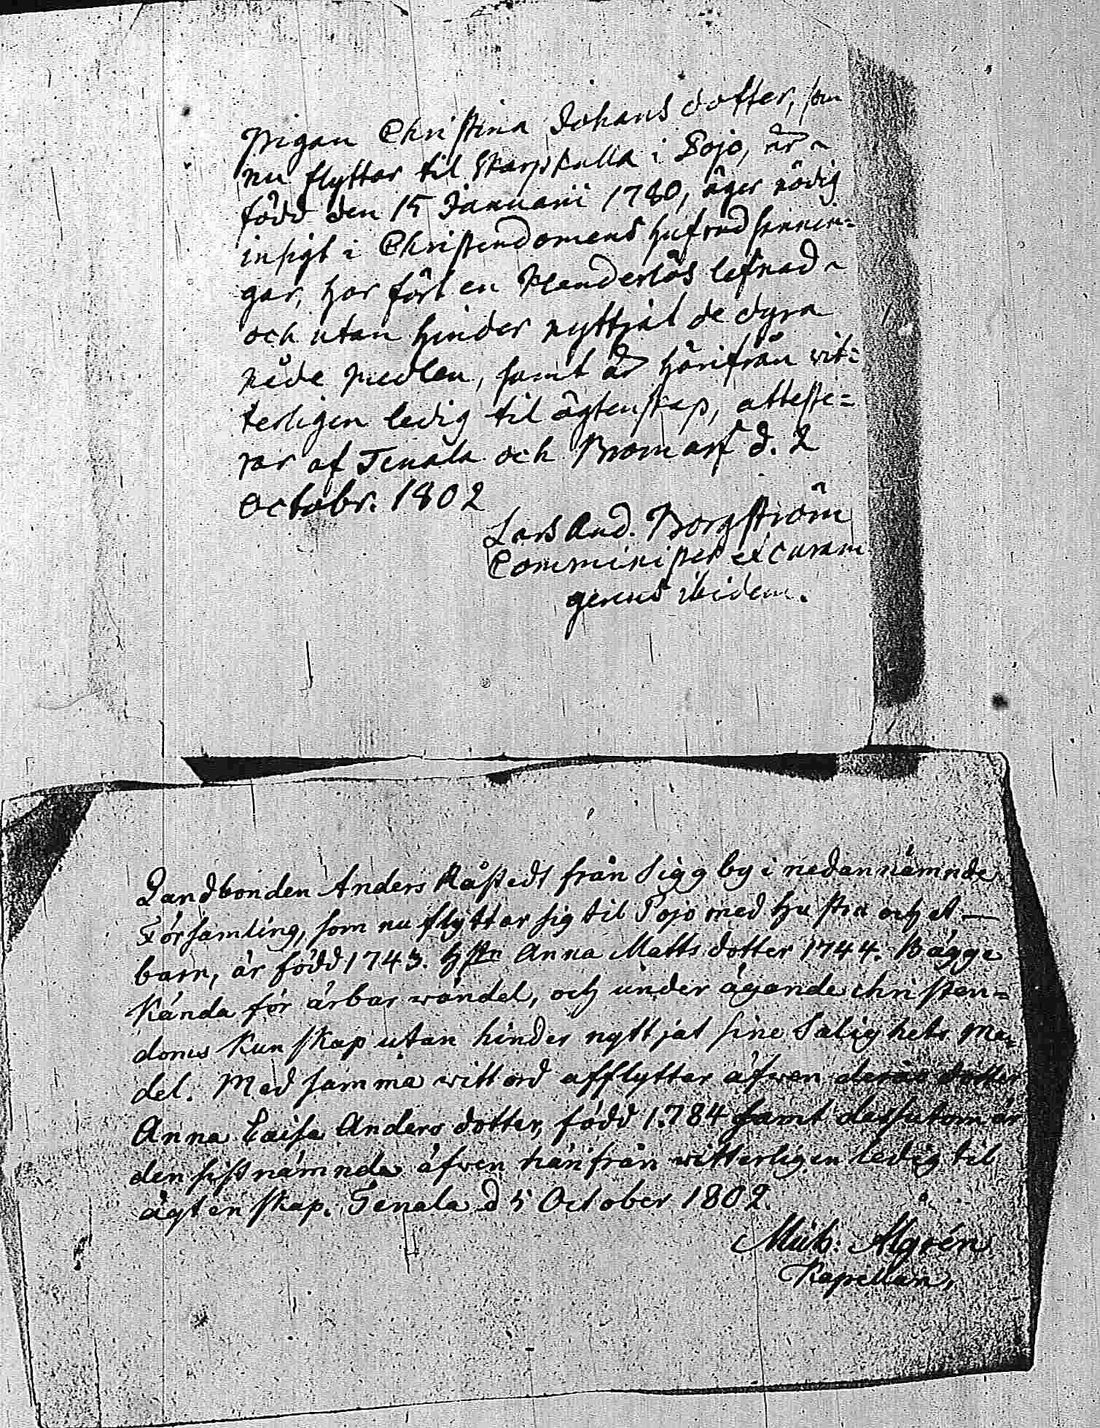 Pigan Christina Johans dotter, som
nu flyttar til Skarpkulla i Pojo, är
född den 15 Januarii 1780, äger nödig
insigt i Christendomens hufvudsannin=
gar, har fört en klanderlös lefnad
och utan hinder nyttjat de dyra
nåde medlen, samt är härifrån vit=
terligen ledig til ägtenskap, atteste=
rar af Tenala och Bromarf d. 2
Octobr. 1802
Lars And. Borgström
Comminister et curam
gerens ibidem.
Landbonden Anders Råstedt från Siggby i nedannämnde
Församling, som nu flyttar sig til Pojo med hustru och et
barn, är född 1743. Hstn Anna Matts dotter 1744. Bägge
kända för ärbar vandel, och under ägande christen=
doms kunskap utan hinder nyttjat sine Salighets Me=
del. Med samma vittord afflyttar äfwen deras dotter
Anna Caisa Anders dotter, född 1784 samt dessutom är
den sistnämnda äfwen härifrån witterligen ledig til
ägtenskap. Tenala d 5 October 1802.
Algrén
Kapellan.